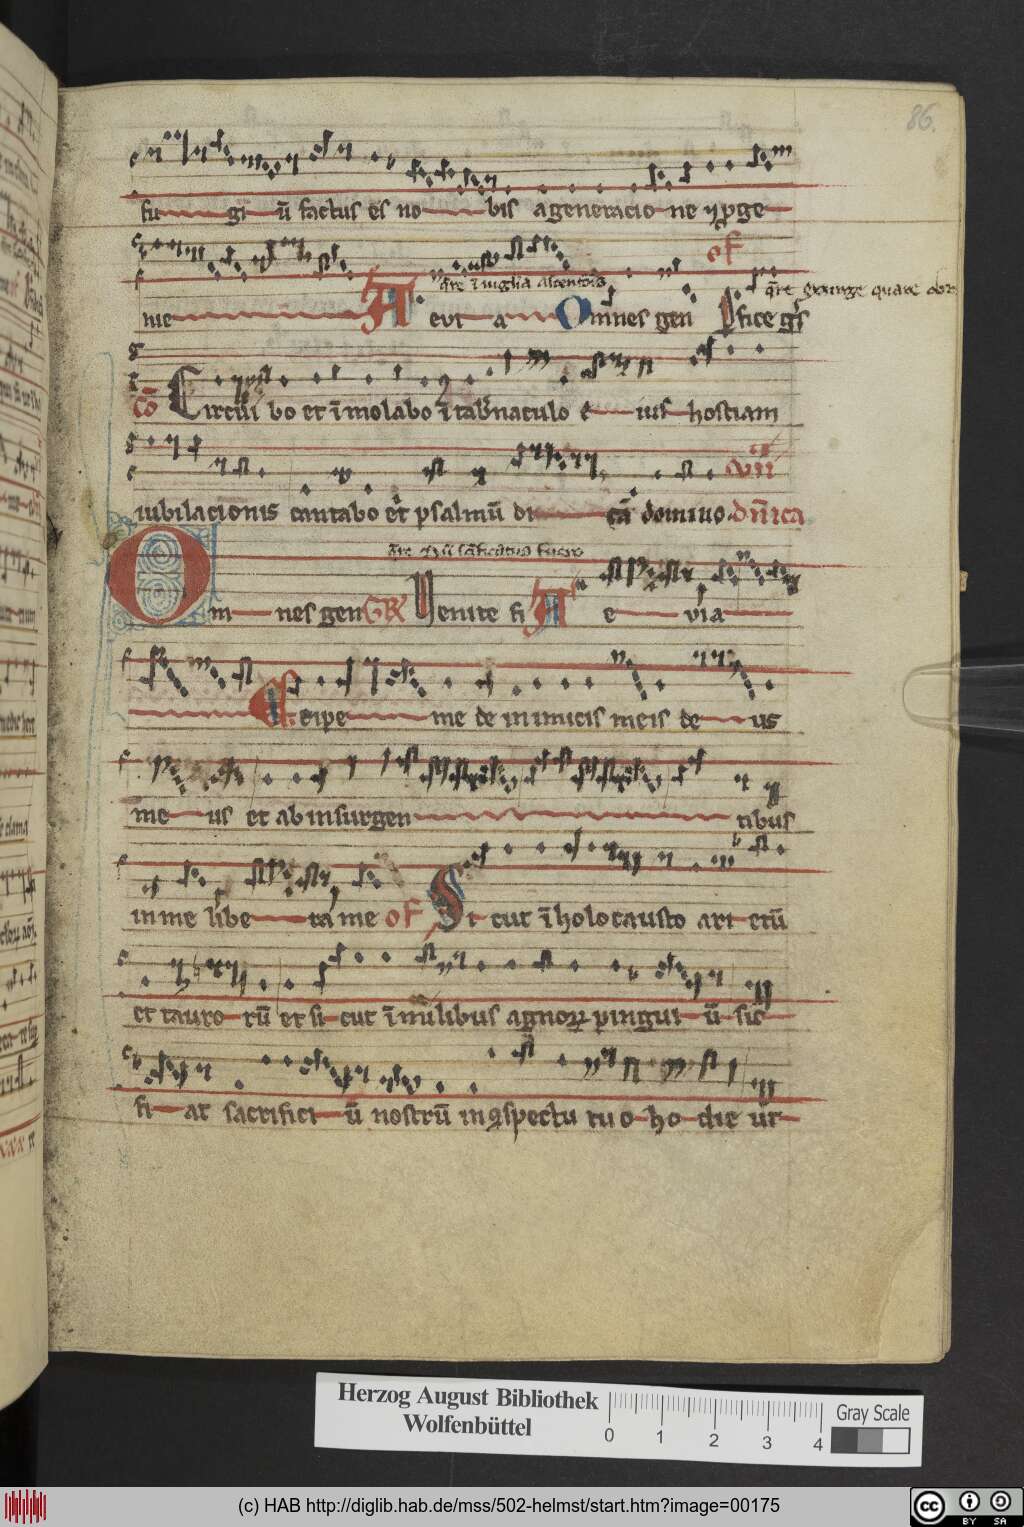 86.
fu gi ū factus es no bis a generacio ne ⁊ pge
of
q̄re ī uiglia ascenōis
q̄re Exurge quare obr
nie A evi a Omnes gen Pfice gs̄
cō Circui bo et īmolabo ī tab'naculo e ius hostiam
VII
iubilacionis cantabo et psalmū di cā domino dn̄ica
Om nes gen GR Venite fi A e via
Eripe me de inimicis meis de us
me us et ab insurgen tibus
in me libe ra me of Si cut ī holocausto ari etū
et tauro rū et si cut ī milibus agnoꝝ pingui ū sic
fi at sacrifici ū nostrū in ꝯspectu tuo ho die ut
Herzog August Bibliothek
Wolfenbüttel
0 1 2 3 4
Gray Scale
(c) HAB http://diglib.hab.de/mss/502-helmst/start.htm?image=00175
cc BY SA